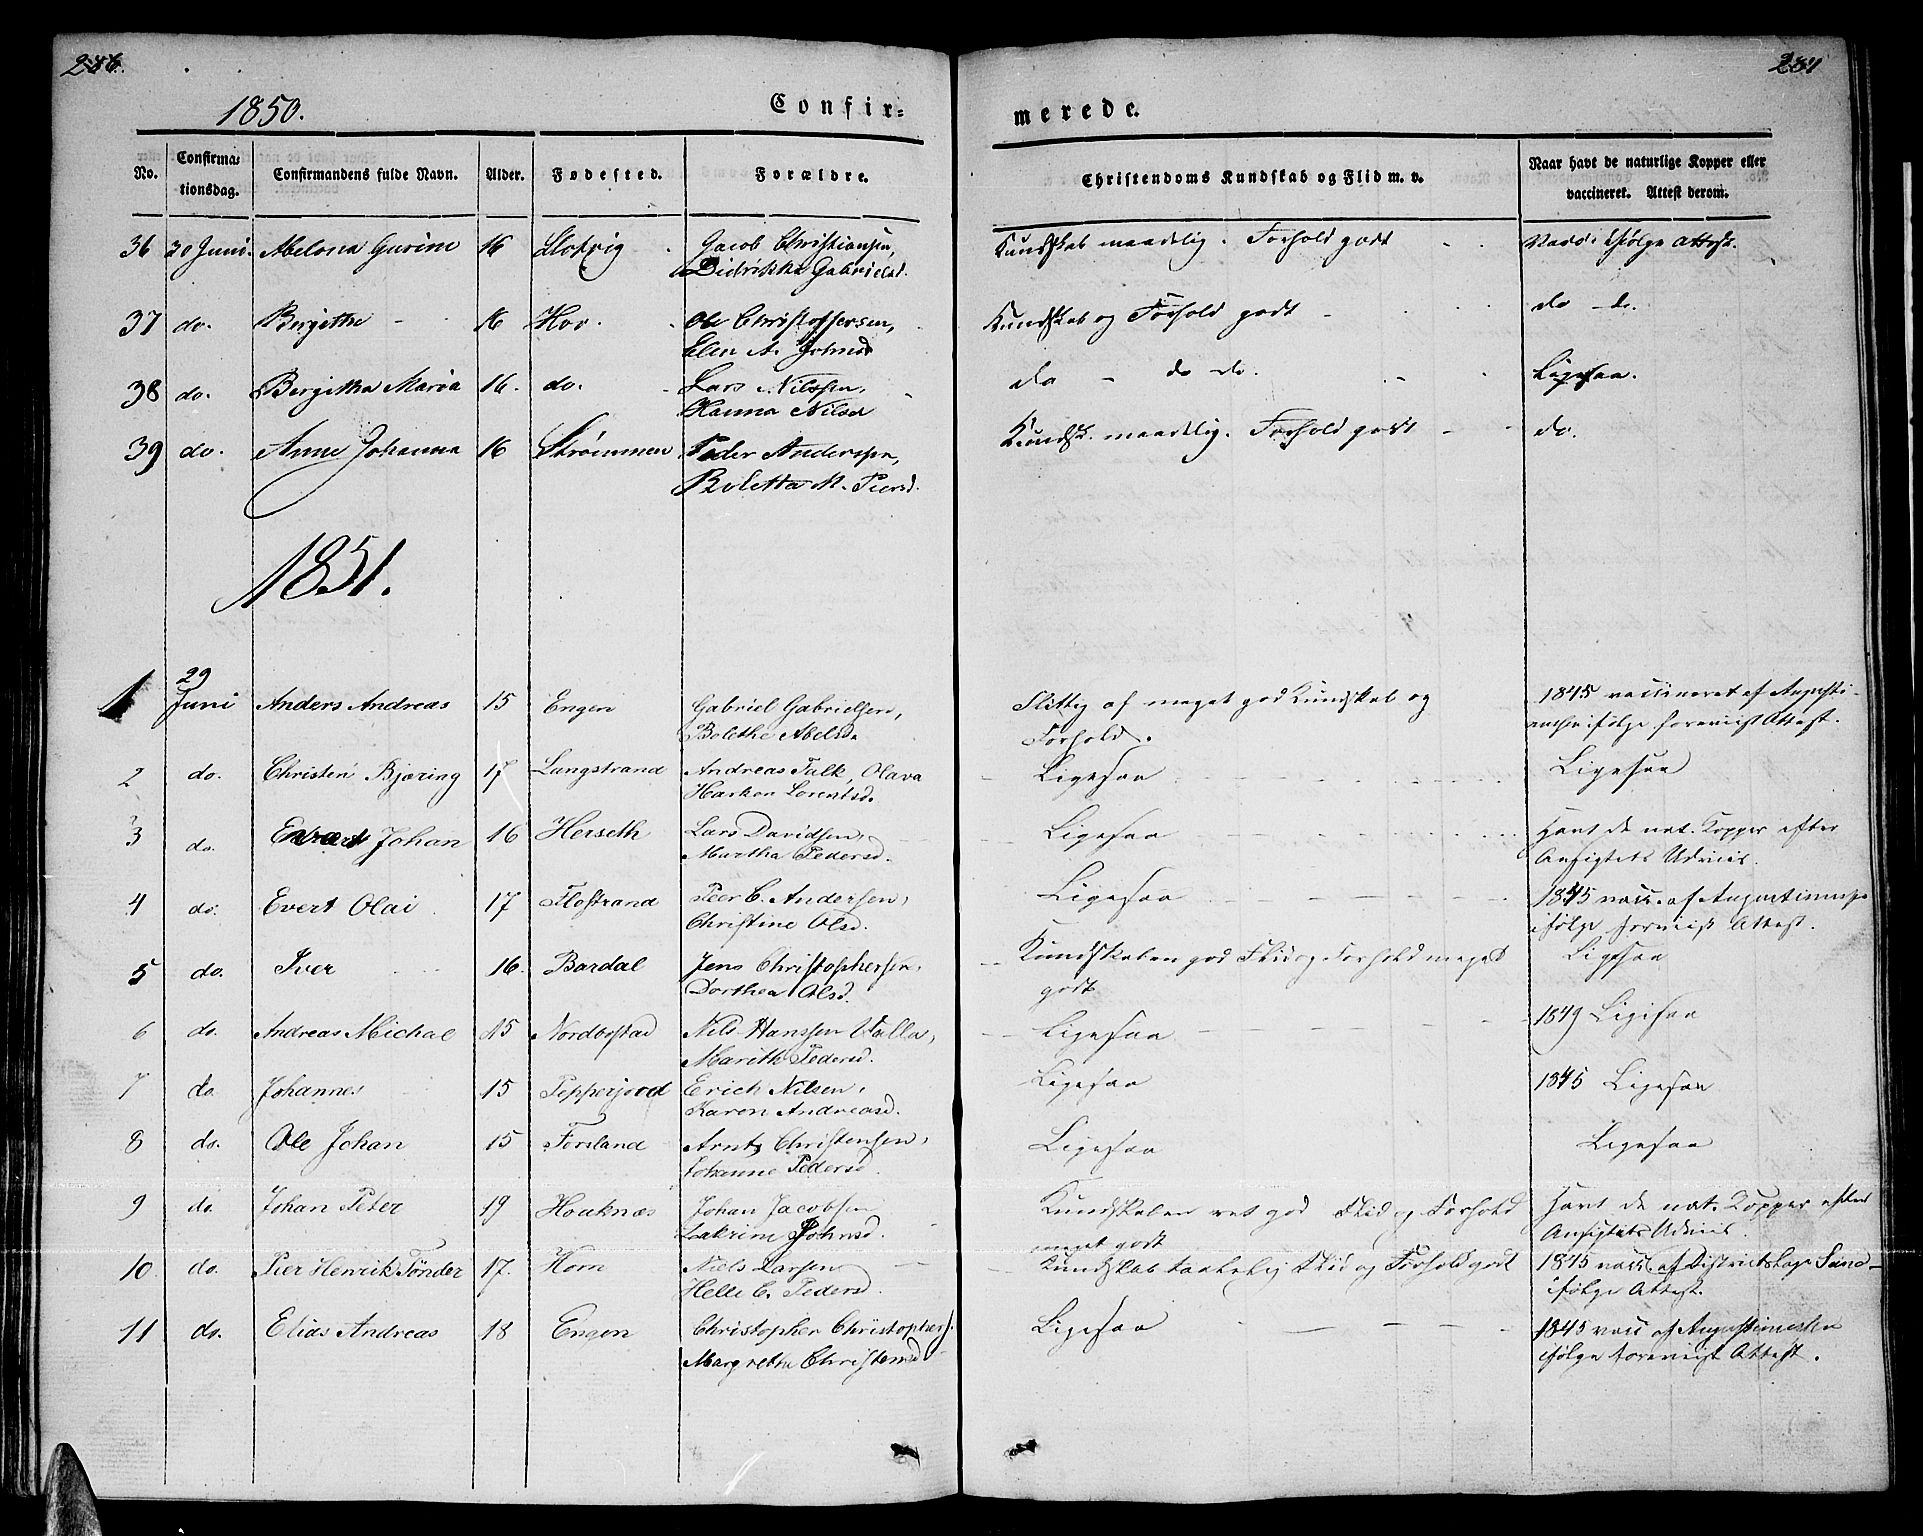 286.
1850.
Confir=
No. Confirmationsdag. Confirmandens fulde Navn. Alder. Fødested. Forældre.
36 30 Juni. Abelona Gurine 16 Jacob Christiansen,
Didrikke Gabrielsd.
37 do. Birgithe 16 Hov. Ole Christophersen,
Elen A. Johnsd
38 do. Bergitha Maria 16. do. Lars Nilssen,
Hanna Nilsd
39 do. Anne Johanna 16 Strømmen Peder Andersen,
Boletta M. Piersd.
1851.
1 29 Juni Anders Andreas 15 Engen Gabriel Gabrielsen,
Bolethe Abelsd.
2 do. Christen Bjøring 17 Langstrand Andreas Falk, Olava
Lorentsd.
3 do. Evert Johan 16 Herseth Lars Davidsen,
Martha Pedersd.
4 do. Evert Olai 17 Flostrand Peer C. Andersen,
Christine Olsd.
5 do. Iver 16. Bardal Jens Christophersen,
Dorthea Olsd.
6 do. Andreas Michal 15 Nordbostad Nils Hanssen Valla,
Marith Pedersd.
7 do. Johannes 15 Pepperjord Erich Nilsen,
Karen Andreasd.
8 do. Ole Johan 15 Forsland Arnt Christensen,
Johanne Pedersd.
9 do. Johan Peter 19 Houknæs Johan Jacobsen
Johnsd.
10. do. Pier Henrik Tønder 17. Horn Niels Larsen
Helle C. Pedersd.
11 do. Elias Andreas 18 Engen Christopher Christophers.
Margrethe Christensd
merede.
Christendoms Kundskab og Flid m. v. Naar havt de naturlige Kopper eller
vaccineret. Attest derom.
Kundskab maadelig. Forhold godt Vacc. ifølge Attest.
Kundskab og Forhold godt do do.
do do do. Ligesaa.
Kundsk. maadelig. Forhold godt do.
Flittig af meget god Kundskab og 1845 vaccineret af Augusti-
Forhold. ifølge foreviist Attest.
Ligesaa Ligesaa
Ligesaa Havt de nat. Kopper efter
Ansigtets Udviis.
Ligesaa 1845 vacc. af Augustinusen
ifølge foreviist Attest.
Kundskaben god Flid og Forhold meget Ligesaa
godt
Ligesaa 1849 Ligesaa
Ligesaa 1845 Ligesaa
Ligesaa Ligesaa
Kundskaben ret god Flid og Forhold Havt de nat. Kopper efter
meget godt Ansigtets Udviis.
Kundskab taalelig Flid og Forhold godt 1845 vacc. af Districtslæge Sund
ifølge Attest.
Ligesaa 1845 vacc af Augustinussen
ifølge foreviist Attest.